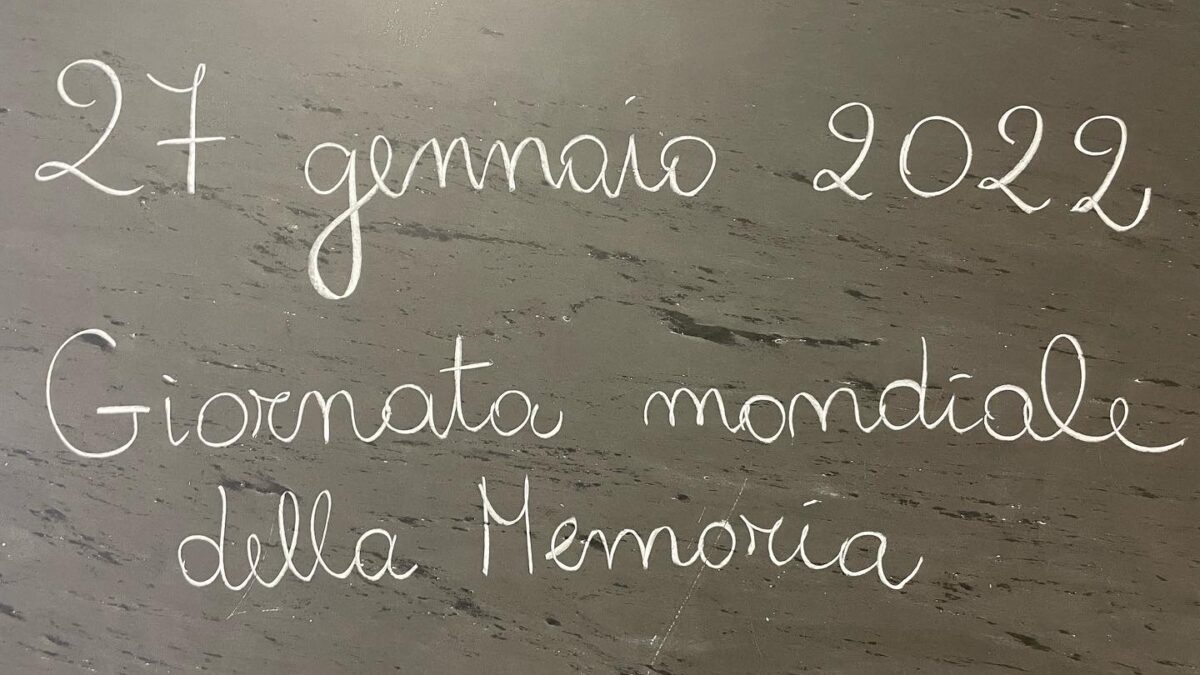 27 gennaio 2022
Giornata mondiale
della Memoria